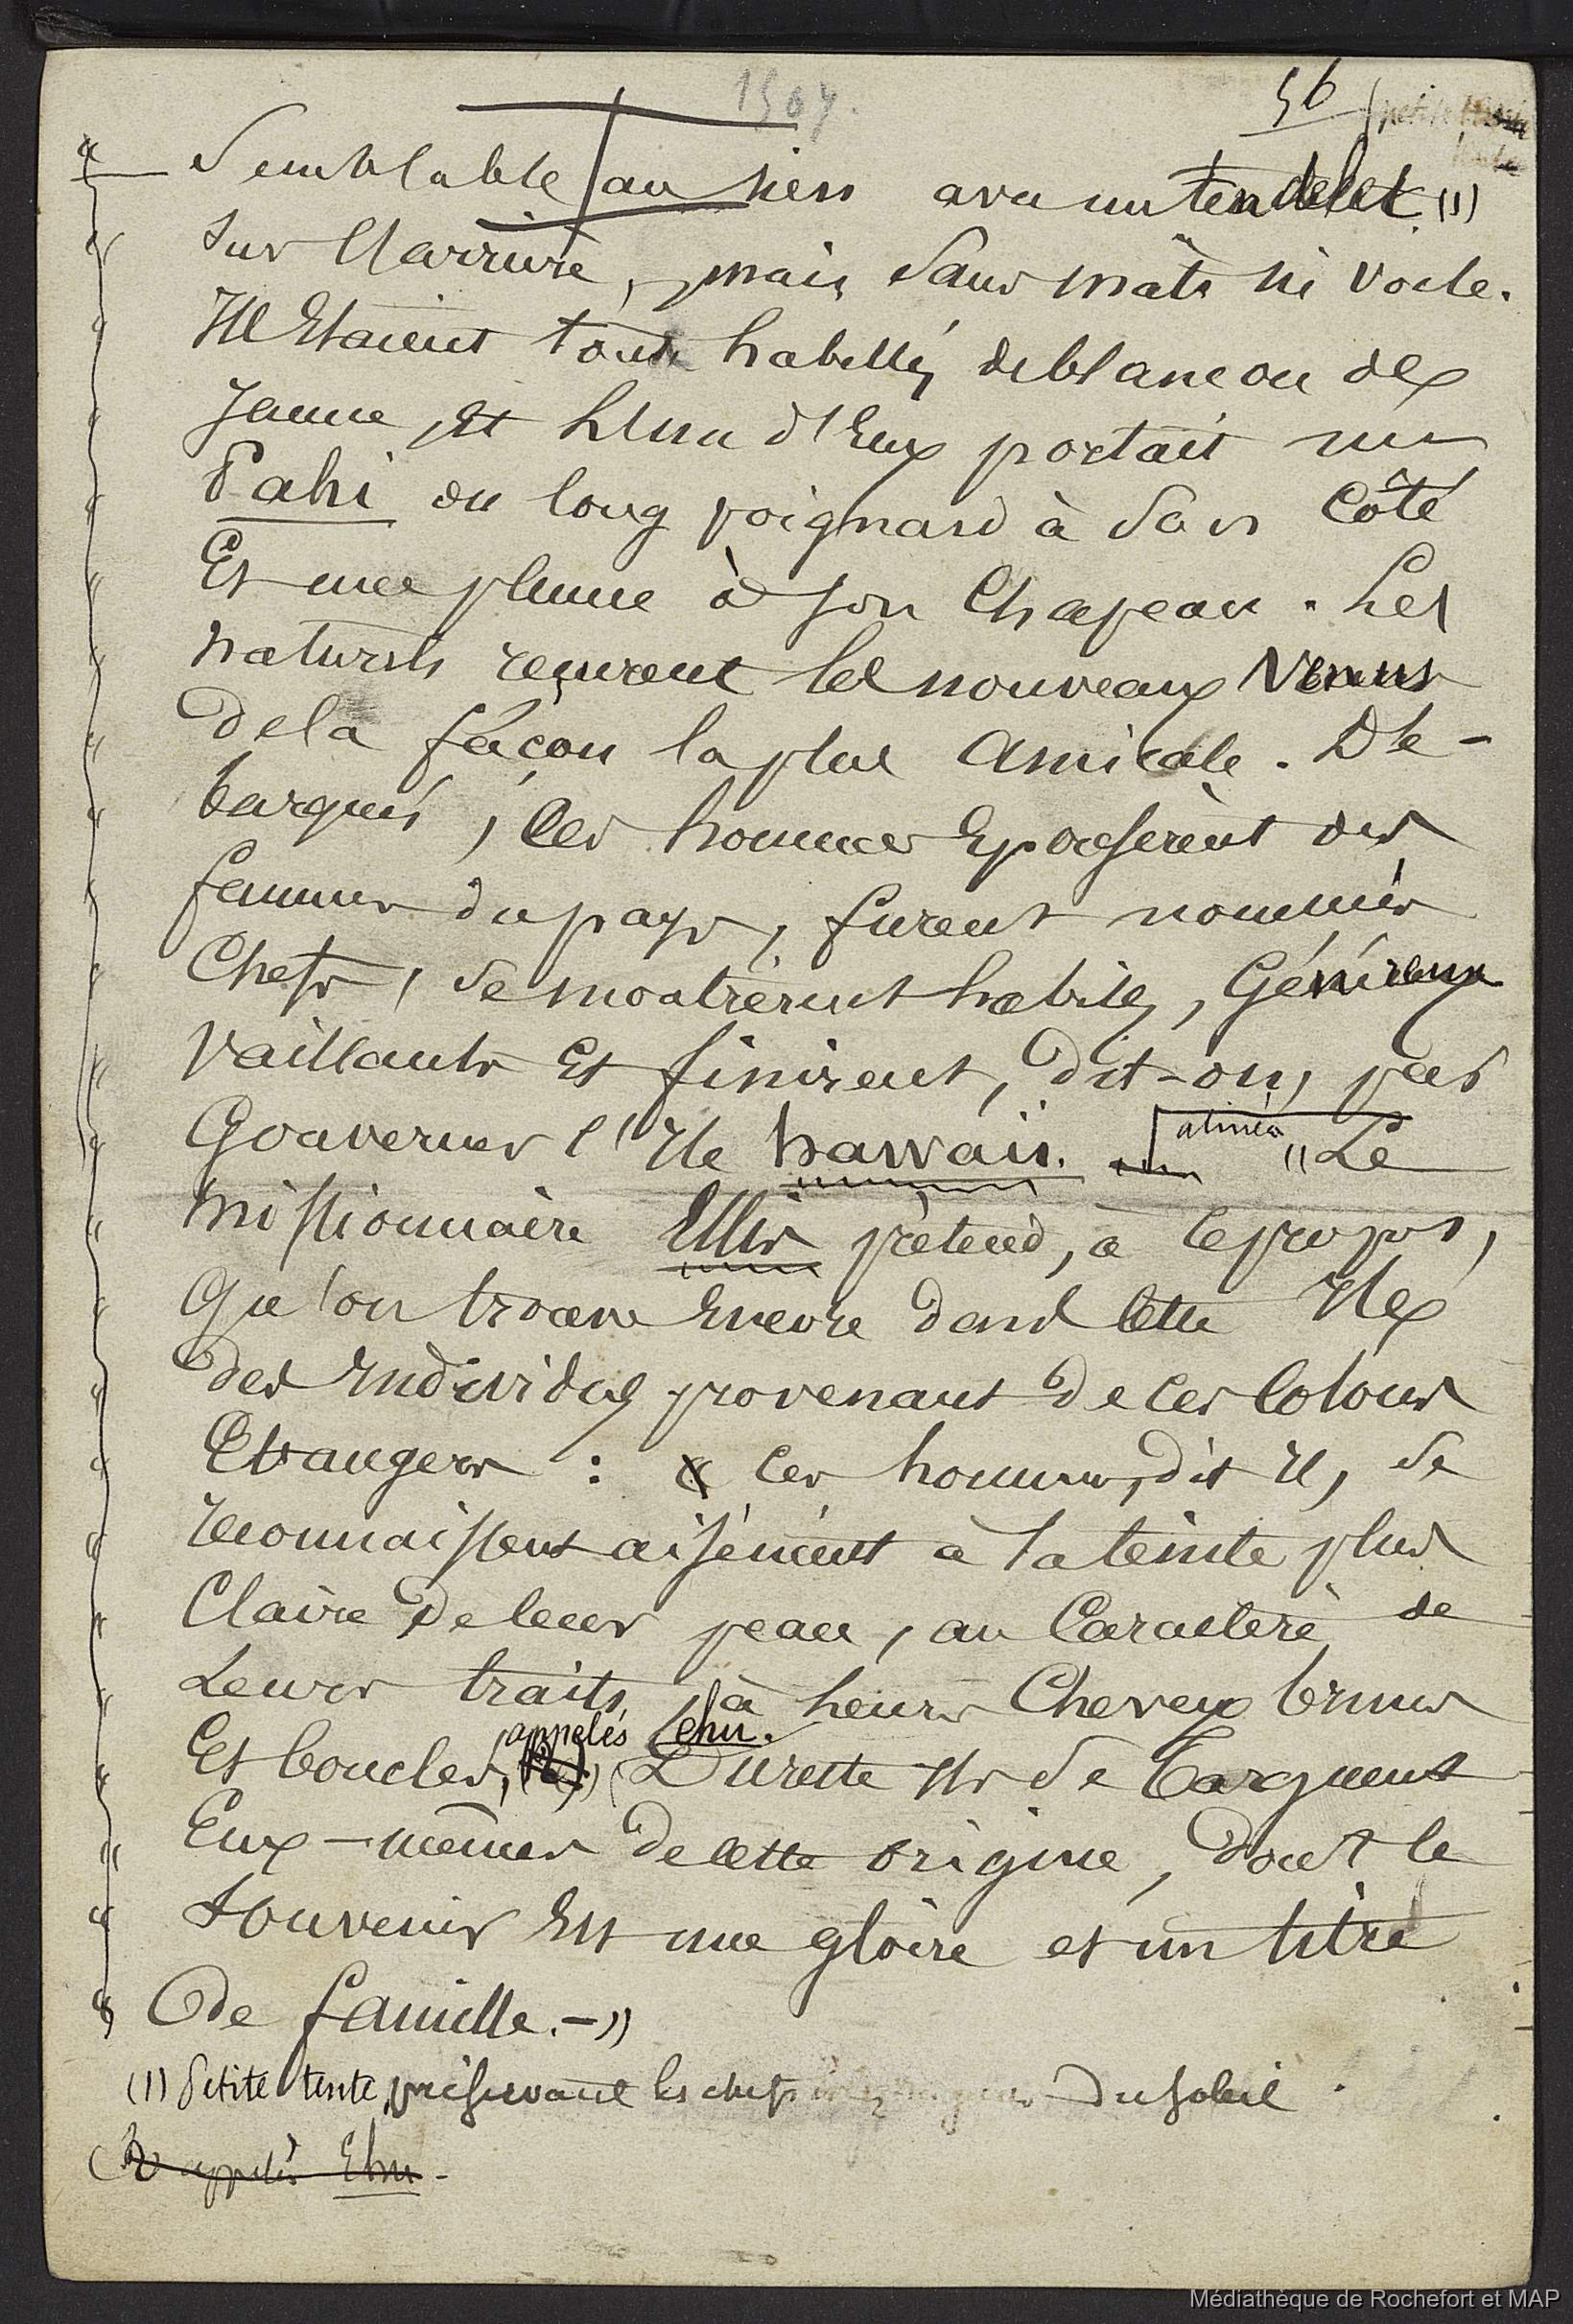 1504.
56
petite
" Semblable au sien avec un tendelet (1)
sur l'arrière, mais sans mâts ni voile.
Ils Etaient tous habillés de blanc ou de
Jaune, Et l'un d'Eux portait un
Pahi ou long poignard à son Côté
Et une plume à son Chapeau. Les
naturels reçurent les nouveaux Venus
de la façon la plus Amicale. Dé-
barqués, Ces hommes Epousèrent des
femmes du pays, furent nommés
Chefs, se montrèrent habiles, Généreux
Vaillants Et finirent, dit-on, par
Gouverner l'Ile hawaii. alinéa "Le
missionnaire Ellis prétend, à ce propos,
Qu'on trouve Encore dans Cette Ile
des Individus provenant de Ces Colons
Etrangers : « Ces hommes, dit Il, se
reconnaissent aisément à la teinte plus
Claire de leur peau, au Caractère de
Leurs traits, à leurs Cheveux bruns
appelés Ehu.
Et boucles, (2) Du reste Ils se targuent
Eux-mêmes de cette origine, dont le
souvenir Est une gloire et un titre
de famille.-"
(1) Petite tente préservant les chefs du soleil.
(2 appelés Ehu-
Médiathèque de Rochefort et MAP